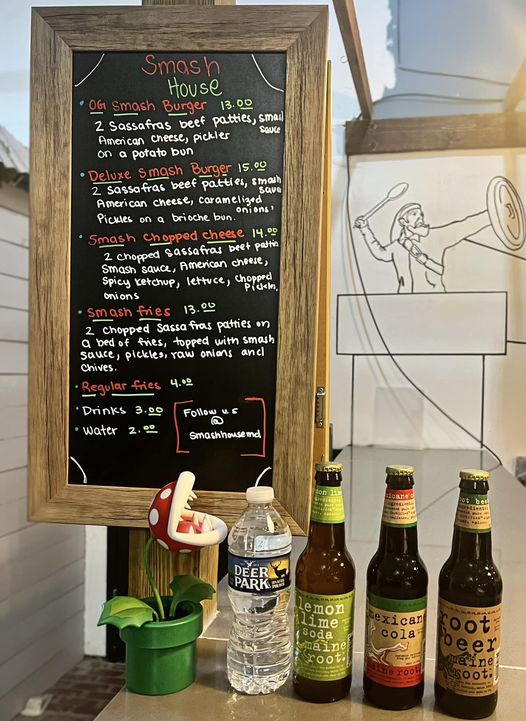 Smash
House
• OG Smash Burger 13.00
2 Sassafras beef patties, smash
sauce
American cheese, pickles
on a potato bun
• Deluxe Smash Burger 15.00
2 Sassafras beef patties, smash
American cheese, caramelized
onions,
Pickles on a brioche bun.
• Smash chopped cheese 14.00
2 chopped Sassafras beef
Smash sauce, American cheese,
Spicy ketchup, lettuce, chopped
Pickle,
onions
• Smash fries 13.00
2 chopped Sassafras patties on
a bed of fries, topped with smash
sauce, pickles, raw onions and
chives.
• Regular fries 4.00
• Drinks 3.00
• Water 2.00
Follow us
@
Smashhousemd
DEER
PARK
lemon
lime
soda
maine
root.
mexican
cola
maine root
root beer
root
beer
maine
root.